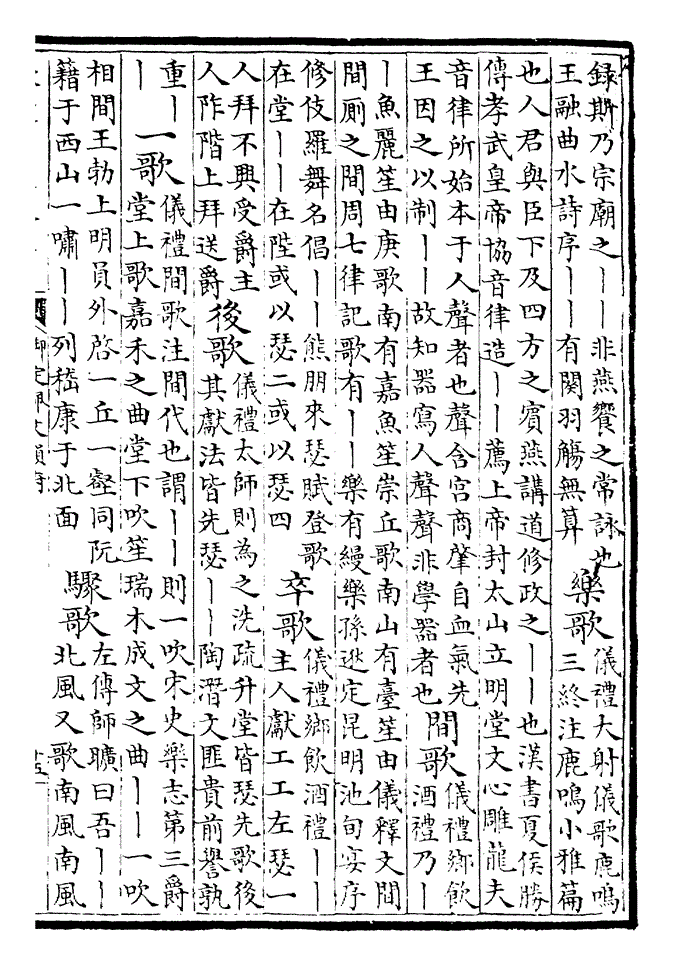 録斯乃宗廟之丨丨非燕饗之常詠也
王融曲水詩序丨丨有闋羽觴無算
樂歌
儀禮大射儀歌鹿鳴
三終注鹿鳴小雅篇
也人君與臣下及四方之賓燕講道修政之丨丨也漢書夏侯勝
傳孝武皇帝協音律造丨丨薦上帝封太山立明堂文心雕龍夫
音律所始本于人聲者也聲含宮商肇自血氣先
王因之以制丨丨故知器寫人聲聲非學器者也
間歌
儀禮鄉飲
酒禮乃丨
丨魚麗笙由庚歌南有嘉魚笙崇丘歌南山有臺笙由儀釋文間
間厠之間周七律記歌有丨丨樂有縵樂孫逖定昆明池旬宴序
修伎羅舞名倡丨丨熊朋來瑟賦登歌
在堂丨丨在陛或以瑟二或以瑟四
卒歌
儀禮鄉飲酒禮丨丨
主人獻工工左瑟一
人拜不興受爵主
人阼階上拜送爵
後歌
儀禮太師則為之洗疏升堂皆瑟先歌後
其獻法皆先瑟丨丨陶潛文匪貴前譽孰
重丨
丨
一歌
儀禮間歌注間代也謂丨丨則一吹宋史樂志第三爵
堂上歌嘉禾之曲堂下吹笙瑞木成文之曲丨丨一吹
相間王勃上明員外啓一丘一壑同阮
籍于西山一嘯丨丨列嵇康于北面
驟歌
左傳師曠曰吾丨丨
北風又歌南風南風